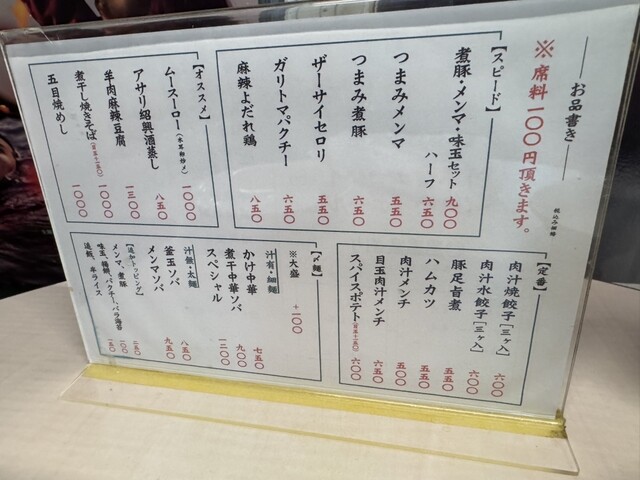 お品書き
税込み価格
※席料一〇〇円頂きます。
【スピード】
煮豚・メンマ・味玉セット 九〇〇
ハーフ 六五〇
つまみメンマ 五五〇
つまみ煮豚 六五〇
ザーサイセロリ 五五〇
ガリトマパクチー 六五〇
麻辣よだれ鶏 八五〇
【オススメ】
ムースーロー(木耳卵炒め) 一〇〇〇
アサリ紹興酒蒸し 八五〇
羊肉麻辣豆腐 一三〇〇
煮干し焼きそば 一〇〇〇
五目焼めし 一〇〇〇
【定番】
肉汁焼餃子[三ヶ入] 六〇〇
肉汁水餃子[三ヶ入] 六〇〇
豚足旨煮 五五〇
ハムカツ 五五〇
肉汁メンチ 五〇〇
目玉肉汁メンチ 六〇〇
スパイスポテト 六〇〇
【〆麺】
※大盛 +一〇〇
汁有・細麺
かけ中華 七五〇
煮干中華ソバ 九〇〇
スペシャル 一二〇〇
汁無・太麺
釜玉ソバ 八五〇
メンマソバ 九五〇
【追加トッピング】
メンマ、煮豚 二五〇
味玉、
パクチー、バラ海苔 一〇〇
追飯、半ライス 一五〇